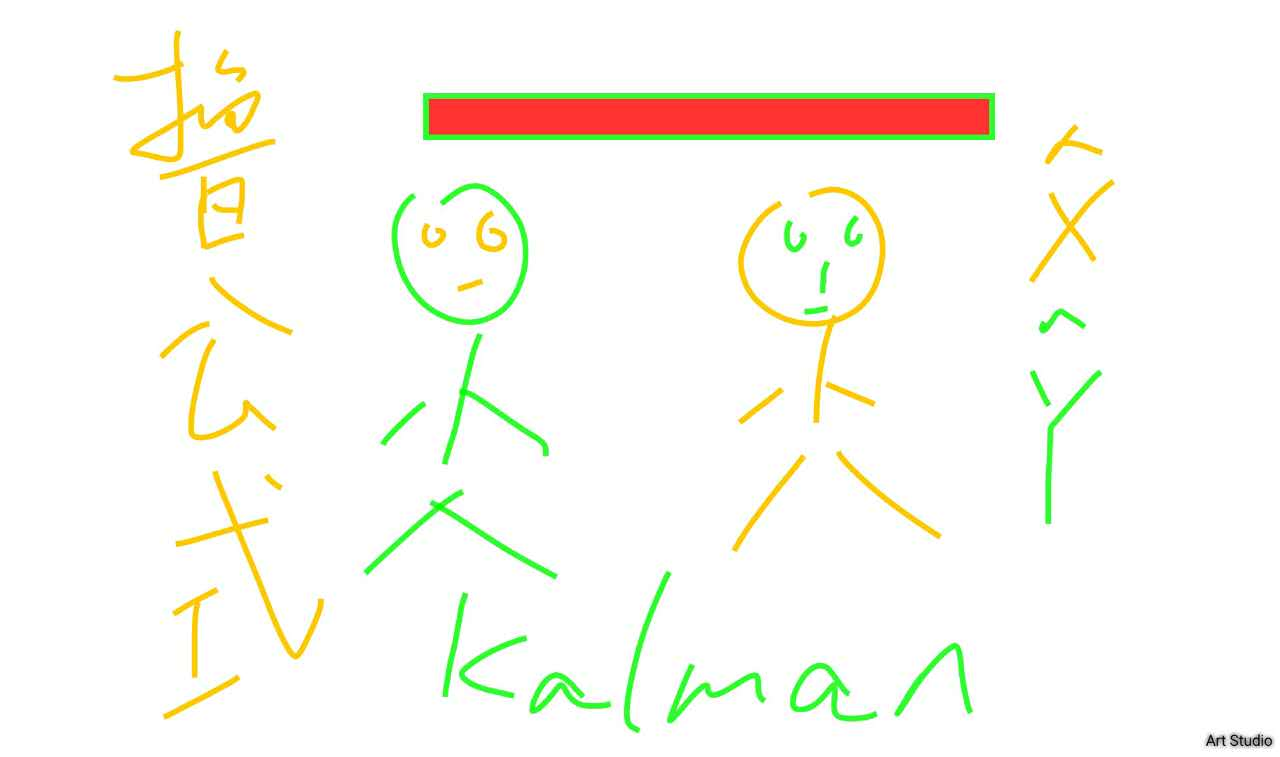 公式
X̂
Ŷ
Kalman
Art Studio